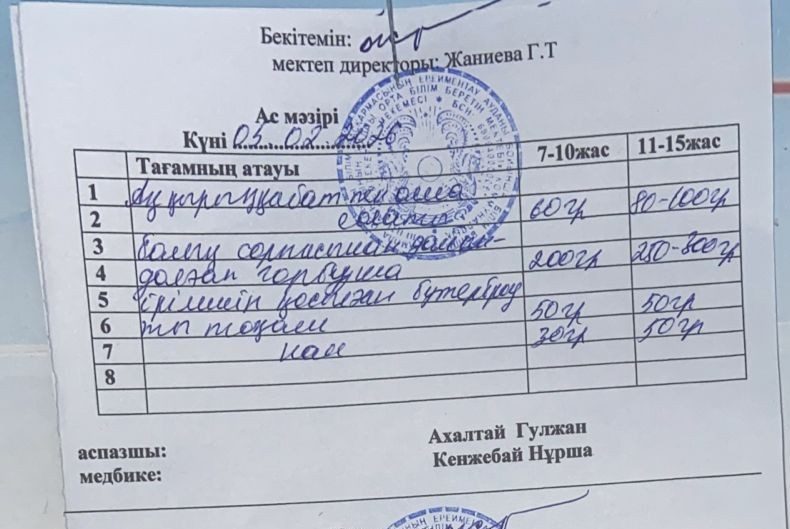 Бекітемін:
мектеп директоры: Жаниева Г.Т
Ас мәзірі
Күні 05.02.2026
Тағамның атауы 7-10жас 11-15жас
1 Ақ қырыққабат пен алма
2 салаты 60гр 80-100гр
3 балық сорпасынан дайын-
4 далған горбуша 200гр 250-300гр
5 ірімшік қосылған бутерброд
6 ты тоқаш 50гр 50гр
7 нан 30гр 50гр
8
аспазшы: Ахалтай Гулжан
медбике: Кенжебай Нұрша